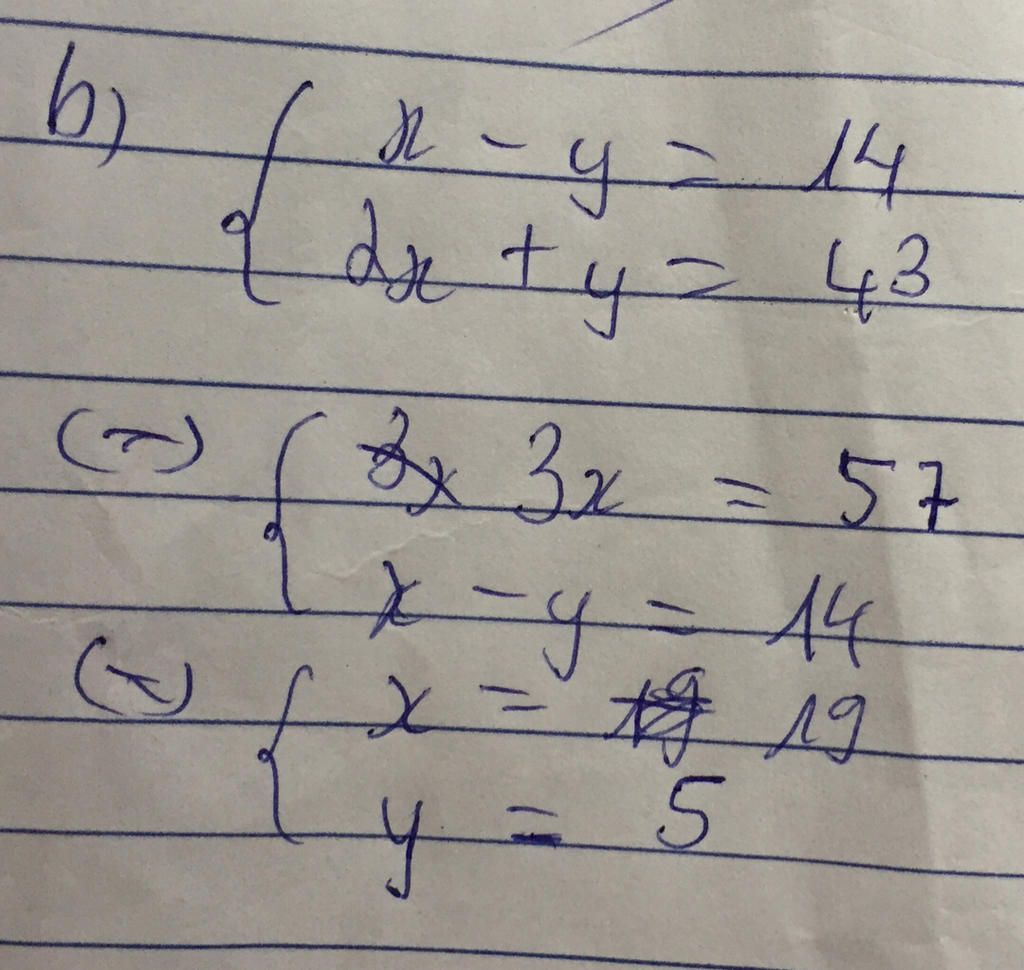 b) { x - y = 14
2x + y = 43
(=) { 3x = 57
x - y = 14
(=) { x = 19
y = 5